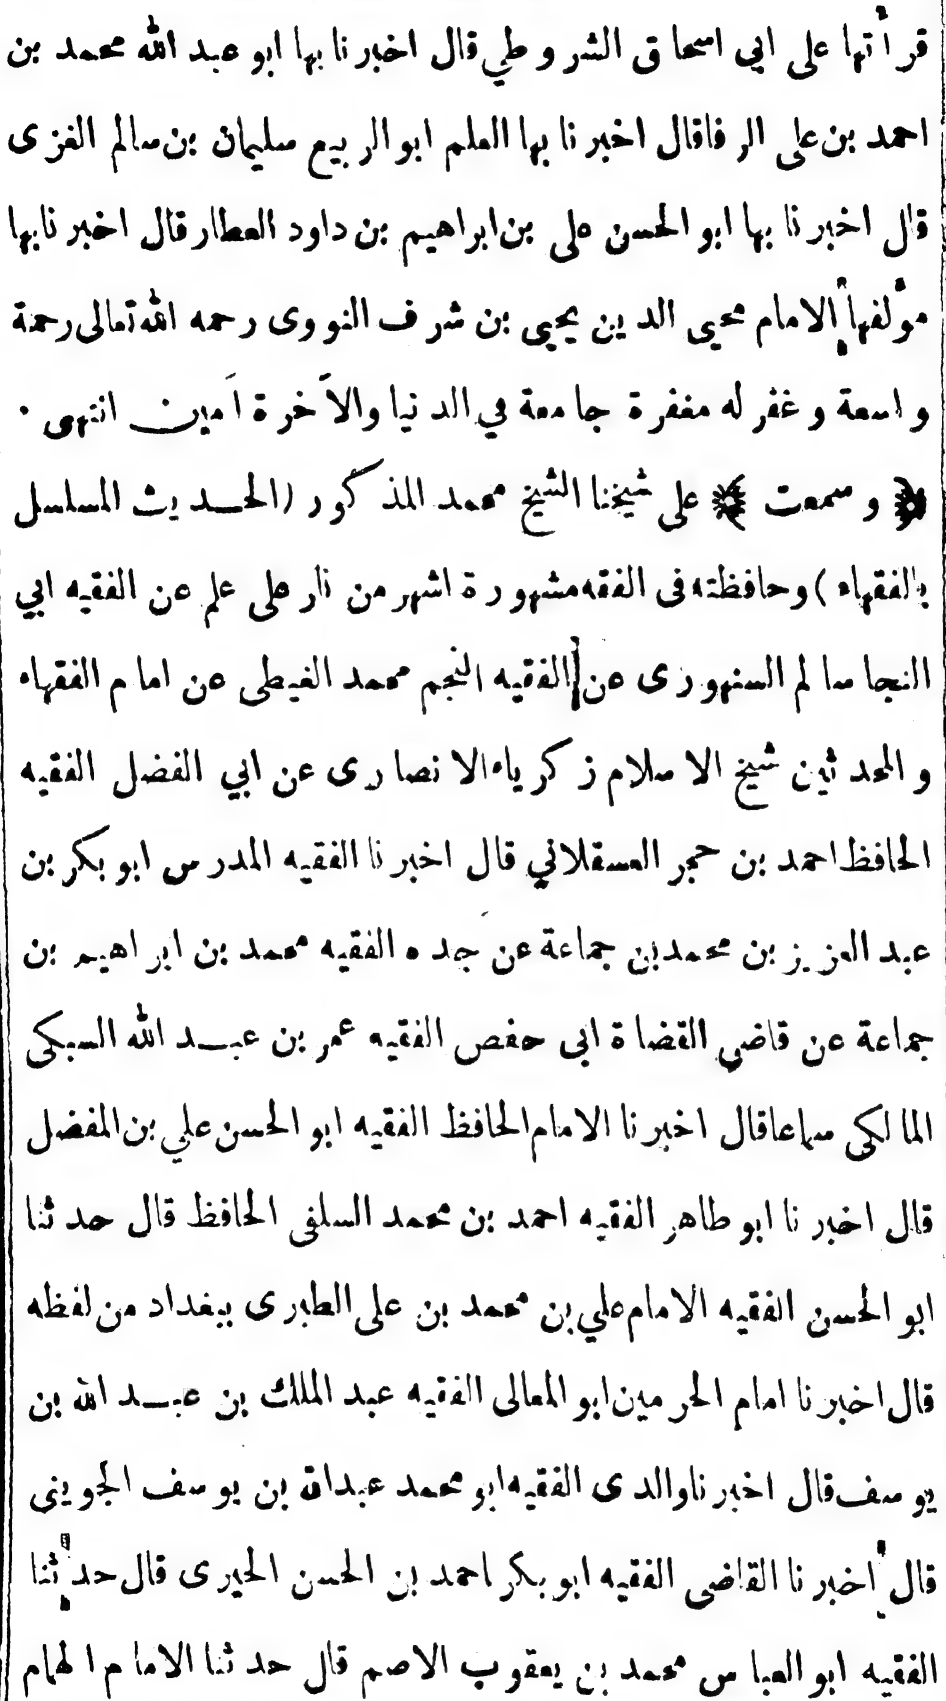 قرأتها على ابى اسحاق الشروطي قال اخبرنا بها ابو عبد الله محمد بن
احمد بن على الرفاقال اخبرنا بها العلم ابو الربيع سليمان بن سالم الغزى
قال اخبرنا بها ابو الحسن على بن ابراهيم بن داود العطار قال اخبرنا بها
مؤلفها الامام محيى الدين يحيى بن شرف النووى رحمه الله تعالى رحمة
واسعة وغفر له مغفرة جامعة في الدنيا والآخرة آمين انتهى ٠
﴿ وسمعت ﴾ على شيخنا الشيخ محمد المذكور (الحديث المسلسل
بالفقهاء) وحافظته فى الفقه مشهورة اشهر من نار على علم عن الفقيه ابي
النجا سالم السنهورى عن الفقيه النجم محمد الغيطى عن امام الفقهاء
والمحدثين شيخ الاسلام زكرياء الانصارى عن ابي الفضل الفقيه
الحافظ احمد بن حجر العسقلاني قال اخبرنا الفقيه المدرس ابو بكر بن
عبد العزيز بن محمد بن جماعة عن جده الفقيه محمد بن ابراهيم بن
جماعة عن قاضي القضاة ابى حفص الفقيه عمر بن عبد الله السبكى
المالكى سماعا قال اخبرنا الامام الحافظ الفقيه ابو الحسن علي بن المفضل
قال اخبرنا ابو طاهر الفقيه احمد بن محمد السلفى الحافظ قال حدثنا
ابو الحسن الفقيه الامام علي بن محمد بن على الطبرى ببغداد من لفظه
قال اخبرنا امام الحرمين ابو المعالى الفقيه عبد الملك بن عبد الله بن
يوسف قال اخبرنا والدى الفقيه ابو محمد عبدالله بن يوسف الجوينى
قال اخبرنا القاضى الفقيه ابو بكر احمد بن الحسن الحيرى قال حدثنا
الفقيه ابو العباس محمد بن يعقوب الاصم قال حدثنا الامام الهمام